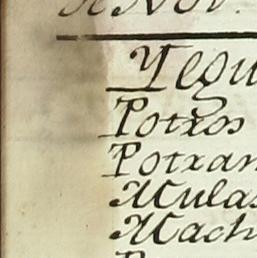 Yegu
Potros
Potran
Mulas
Mach